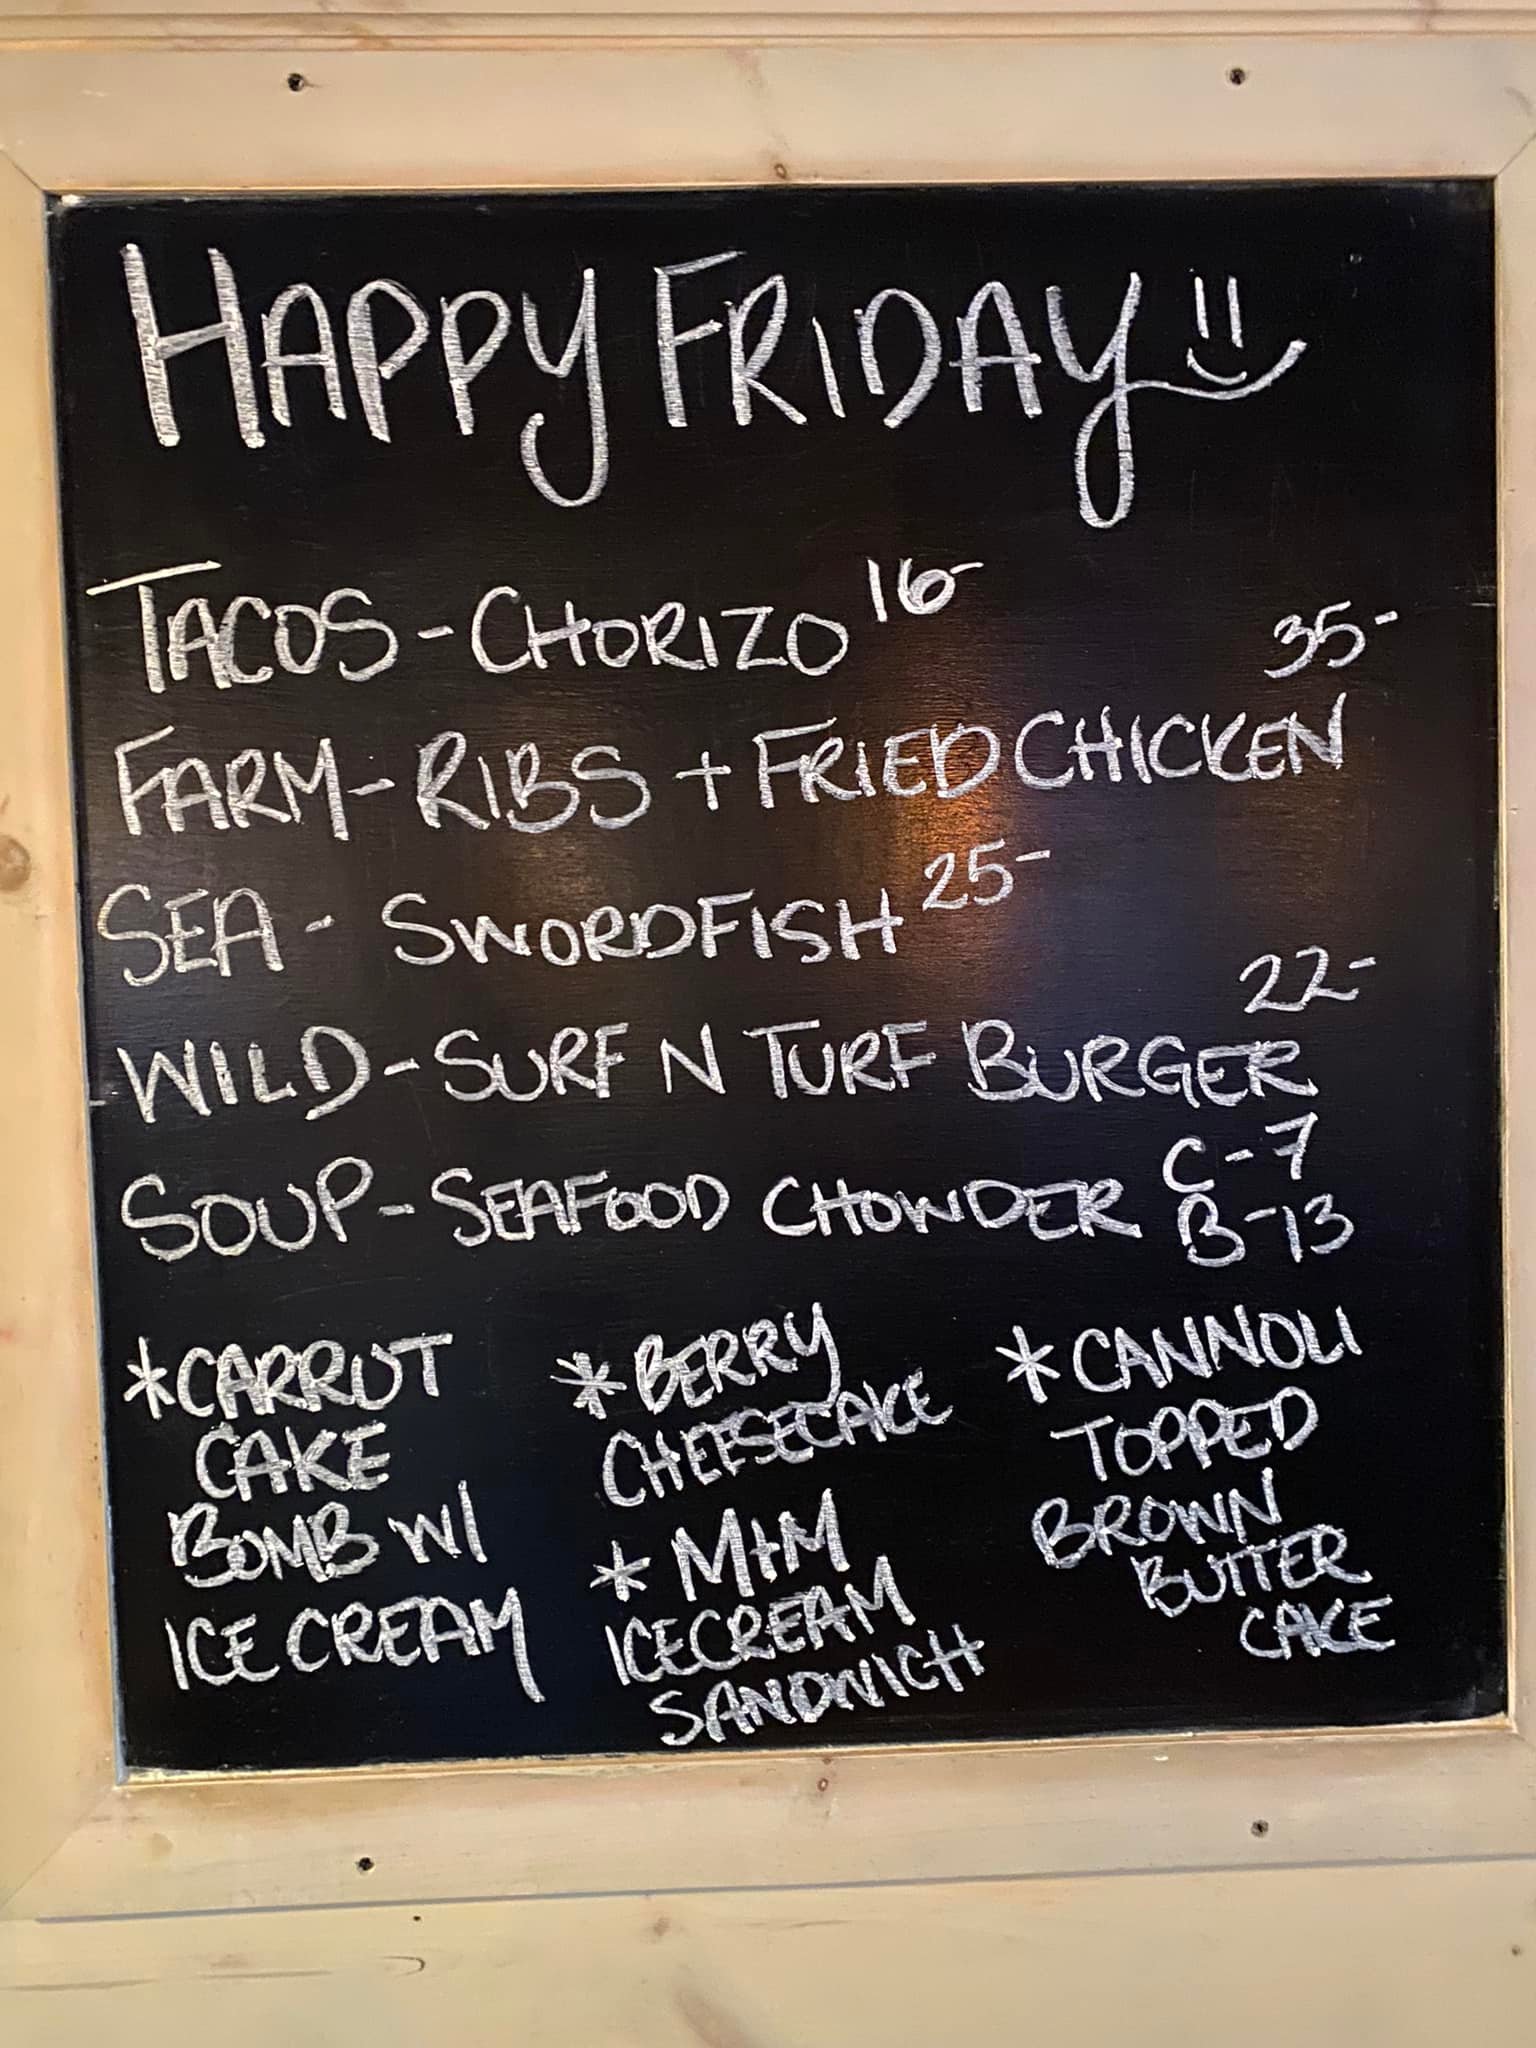 HAPPY FRIDAY
TACOS - CHORIZO 16-
35-
FARM - RIBS + FRIED CHICKEN
SEA - SWORDFISH 25-
22-
WILD - SURF N TURF BURGER
SOUP - SEAFOOD CHOWDER C-7
B-13
*CARROT
CAKE
BOMB W/
ICE CREAM
*BERRY
CHEESECAKE
*M+M
ICECREAM
SANDWICH
*CANNOLI
TOPPED
BROWN
BUTTER
CAKE